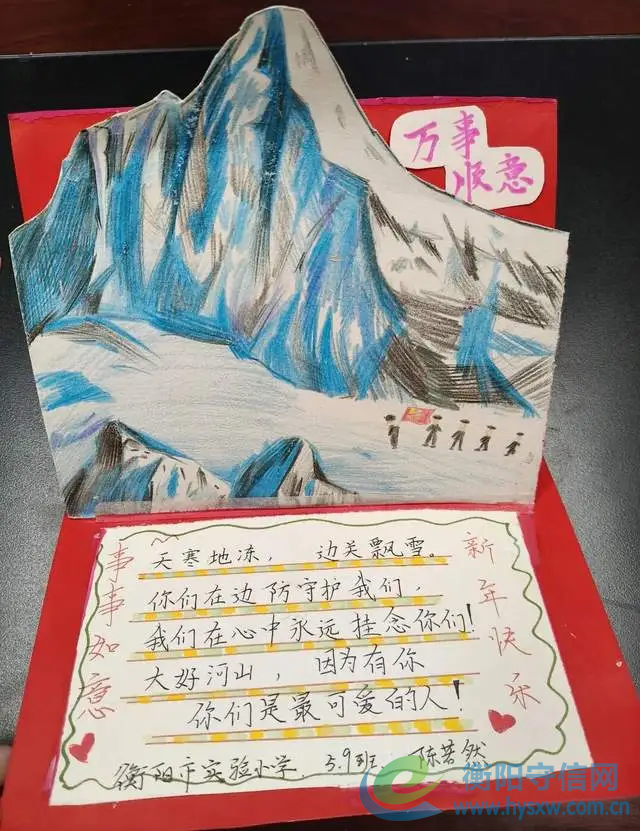 万事
顺意
事事如意
天寒地冻， 边关飘雪。
你们在边防守护我们，
我们在心中永远挂念你们！
大好河山， 因为有你
你们是最可爱的人！
新年快乐
衡阳市实验小学. 5.9班 陈若然
衡阳守信网
www.hysxw.com.cn